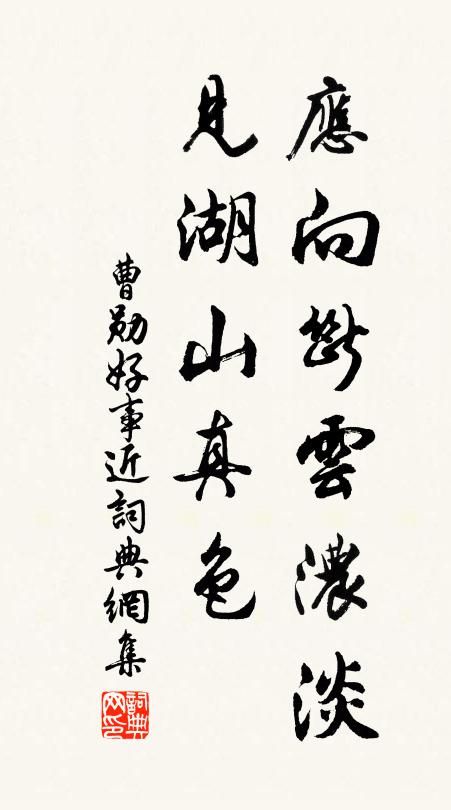 應向斷雲濃淡
見湖山真色
曹勛好事近詞典網集
詞典网印